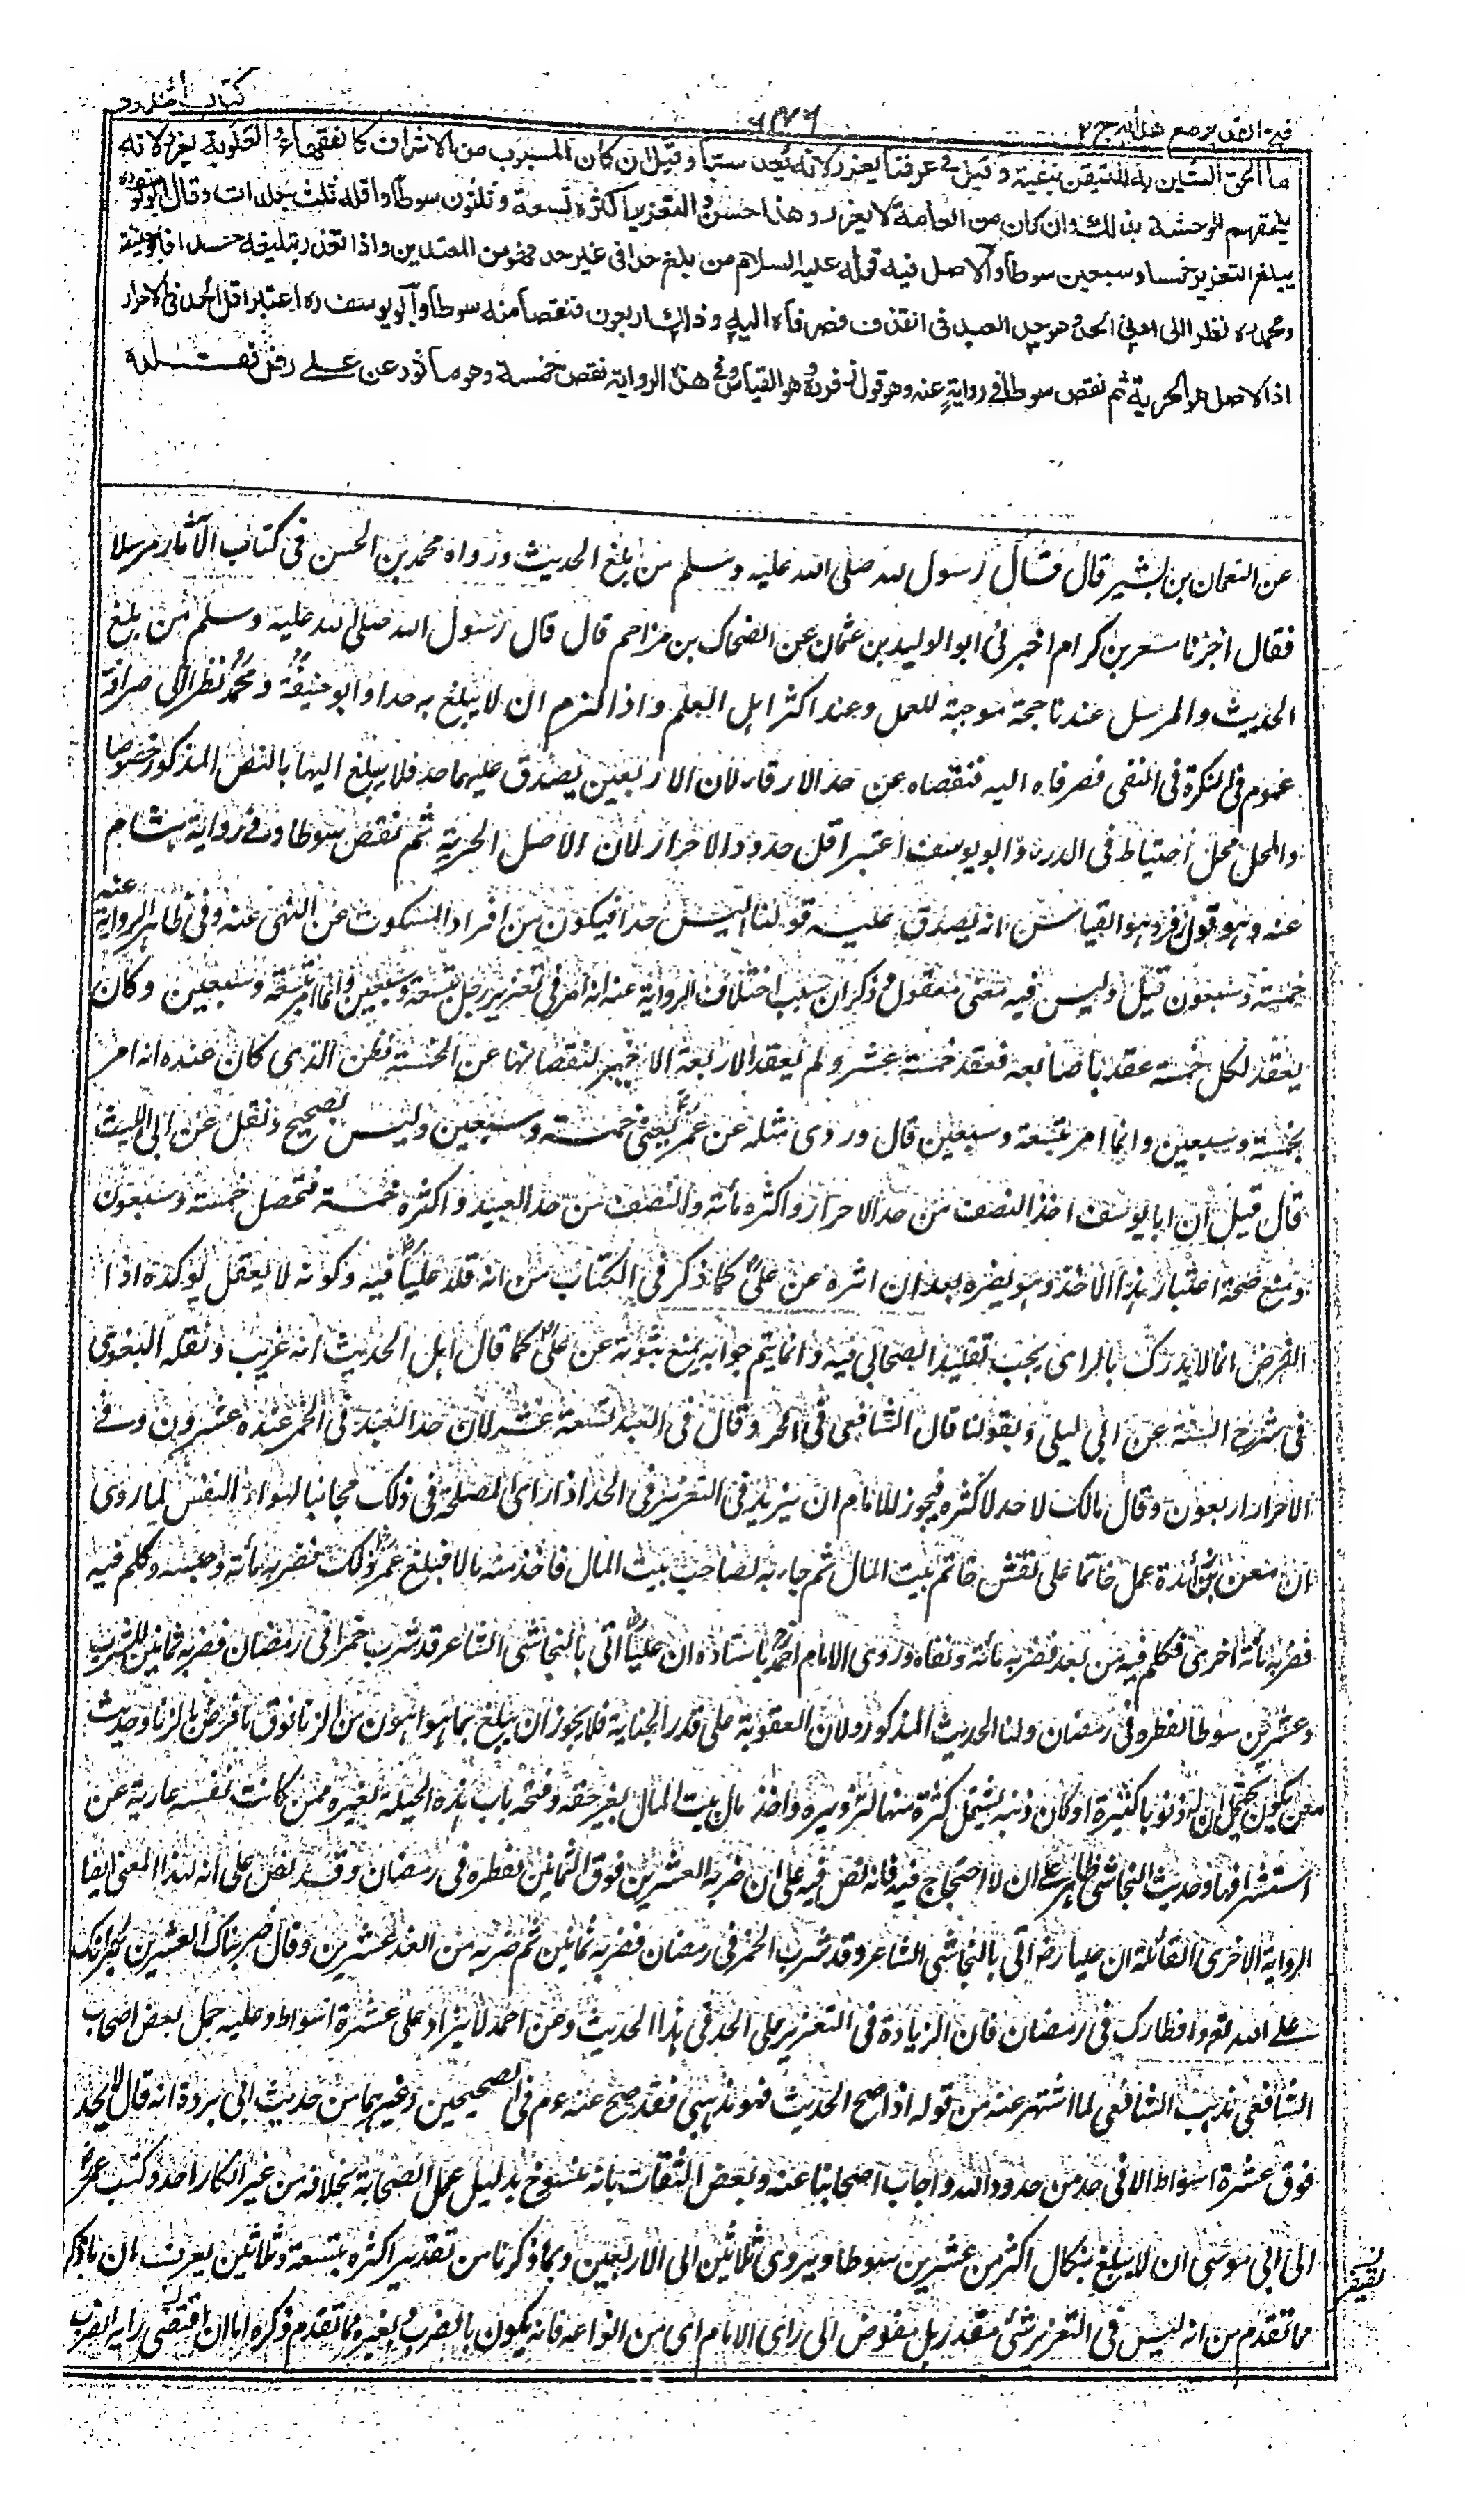 فتح القدير مع هدايه ج ٢
٦٧٦
كتاب الحدود
ما الحق الشين به للتيقن بنفيه وقيل في عرفنا يعزر لانه يعد سبا وقيل ان كان المسبوب من الاشراف كالفقهاء والعلوية يعزر لانه
يلحقهم الوحشة بذلك وان كان من العامة لا يعزر وهذا حسن والتعزير اكثره تسعة وثلثون سوطا واقله ثلث جلدات وقال ابو يوسف ره
يبلغ التعزير خمسا وسبعين سوطا والاصل فيه قوله عليه السلام من بلغ حدا في غير حد فهو من المعتدين واذا تعذر تبليغه حدا فابو حنيفة
ومحمد ره نظرا الى ادنى الحد وهو حد العبد فى القذف فصرفاه اليه وذلك اربعون فنقصا منه سوطا وابو يوسف ره اعتبر اقل الحد فى الاحرار
اذ الاصل هو الحرية ثم نقص سوطا في رواية عنه وهو قول زفر ره وهو القياس وفي هذه الرواية نقص خمسة وهو ماثور عن على رض فقلده
عن النعمان بن بشير قال قال رسول الله صلى الله عليه وسلم من بلغ الحديث ورواه محمد بن الحسن فى كتاب الآثار مرسلا
فقال اخبرنا مسعر بن كدام اخبرنى ابو الوليد بن عثمان عن الضحاك بن مزاحم قال قال رسول الله صلى الله عليه وسلم من بلغ
الحديث والمرسل عندنا حجة موجبة للعمل وعند اكثر اهل العلم واذا لزم ان لا يبلغ به حدا وابو حنيفة ومحمد نظرا الى صرافة
عموم فى النكرة فى النفى فصرفاه اليه فنقصاه عن حد الارقاء لان الاربعين يصدق عليها حد فلا يبلغ اليها بالنص المذكور خصوصا
والمحل محل احتياط فى الدرء وابو يوسف اعتبر اقل حدود الاحرار لان الاصل الحرية ثم نقص سوطا وفى رواية هشام
عنه وهو قول زفر وهو القياس انه يصدق عليه قولنا ليس حدا فيكون من افراد المسكوت عن النهى عنه وفى ظاهر الرواية عنه
خمسة وسبعون قيل وليس فيه معنى معقول وذكر ان سبب اختلاف الرواية عنه انه امر فى تعزير رجل بتسعة وسبعين وانما امر بتسعة وسبعين وكان
يعقد لكل خمسة عقدا باصابعه فعقد خمسة عشر ولم يعقد الاربعة الاخيرة لنقصانها عن الخمسة فظن الذى كان عنده انه امر
بخمسة وسبعين وانما امر بتسعة وسبعين قال وروى مثله عن عمر يعنى خمسة وسبعين وليس بصحيح ونقل عن ابى الليث
قال قيل ان ابا يوسف اخذ النصف من حد الاحرار واكثره مائة والنصف من حد العبيد واكثره خمسة فتحصل خمسة وسبعون
ومنع صحة اعتبار هذا الاخذ وهو يضره بعد ان اثره عن على كما ذكر فى الكتاب من انه قلد عليا فيه وكونه لا يعقل يؤكده اذا
الفرض انما لا يدرك بالراى يجب تقليد الصحابى فيه وانما يتم جوابه بمنع ثبوته عن على كما قال اهل الحديث انه غريب ونقله البغوى
فى شرح السنة عن ابى ليلى وبقولنا قال الشافعى فى الحر وقال فى العبد تسعة عشر لان حد العبد فى الخمر عنده عشرون وفى
الاحرار اربعون وقال مالك لا حد لاكثره فيجوز للامام ان يزيد فى التعزير فى الحد اذا راى المصلحة فى ذلك مجانبا لهواء النفس لما روى
ان معن بن زائدة عمل خاتما على نقش خاتم بيت المال ثم جاء به لصاحب بيت المال فاخذ منه مالا فبلغ عمر ذلك فضربه مائة وحبسه وكلم فيه
فضربه مائة اخرى فكلم فيه من بعد فضربه مائة ونفاه وروى الامام احمد باسناده ان عليا اتى بالنجاشى الشاعر قد شرب خمرا فى رمضان فضربه ثمانين للشرب
وعشرين سوطا لفطره فى رمضان ولنا الحديث المذكور ولان العقوبة على قدر الجناية فلا يجوز ان يبلغ بما هو اهون من الزنا فوق ما فرض بالزنا وحديث
معن يكون يحتمل ان له ذنوبا كثيرة او كان ذنبه يشتمل كثرة منها لتزويره واخذ مال بيت المال بغير حقه وفتحه باب هذه الحيلة لغيره ممن كانت نفسه عارية عن
استشرافها وحديث النجاشى ظاهر على ان لا احتجاج فيه فانه نص فيه على ان ضربه العشرين فوق الثمانين لفطره فى رمضان وقد نص على انه لهذا المعنى ايضا
الرواية الاخرى القائلة ان عليا رض اتى بالنجاشى الشاعر وقد شرب الخمر فى رمضان فضربه ثمانين ثم ضربه من الغد عشرين وقال ضربناك العشرين لجراتك
على الله تع وافطارك فى رمضان فان الزيادة فى التعزير على الحد فى هذا الحديث وعن احمد لا يزاد على عشرة اسواط وعليه حمل بعض اصحاب
الشافعى مذهب الشافعى لما اشتهر عنه من قوله اذا صح الحديث فهو مذهبى فقد صح عنه عم فى الصحيحين وغيرهما من حديث ابى بردة انه قال لا يجلد
فوق عشرة اسواط الا فى حد من حدود الله واجاب اصحابنا عنه وبعض الثقات بانه منسوخ بدليل عمل الصحابة بخلافه من غير انكار احد وكتب عمر
الى ابى موسى ان لا يبلغ بنكال اكثر من عشرين سوطا ويروى ثلاثين الى الاربعين وبما ذكرنا من تقدير اكثره بتسعة وثلاثين يعرف ان ما ذكر
مما تقدم من انه ليس فى التعزير شئ مقدر بل مفوض الى راى الامام اى من انواعه فانه يكون بالضرب وبغيره مما تقدم ذكره اما ان اقتضى رايه الضرب